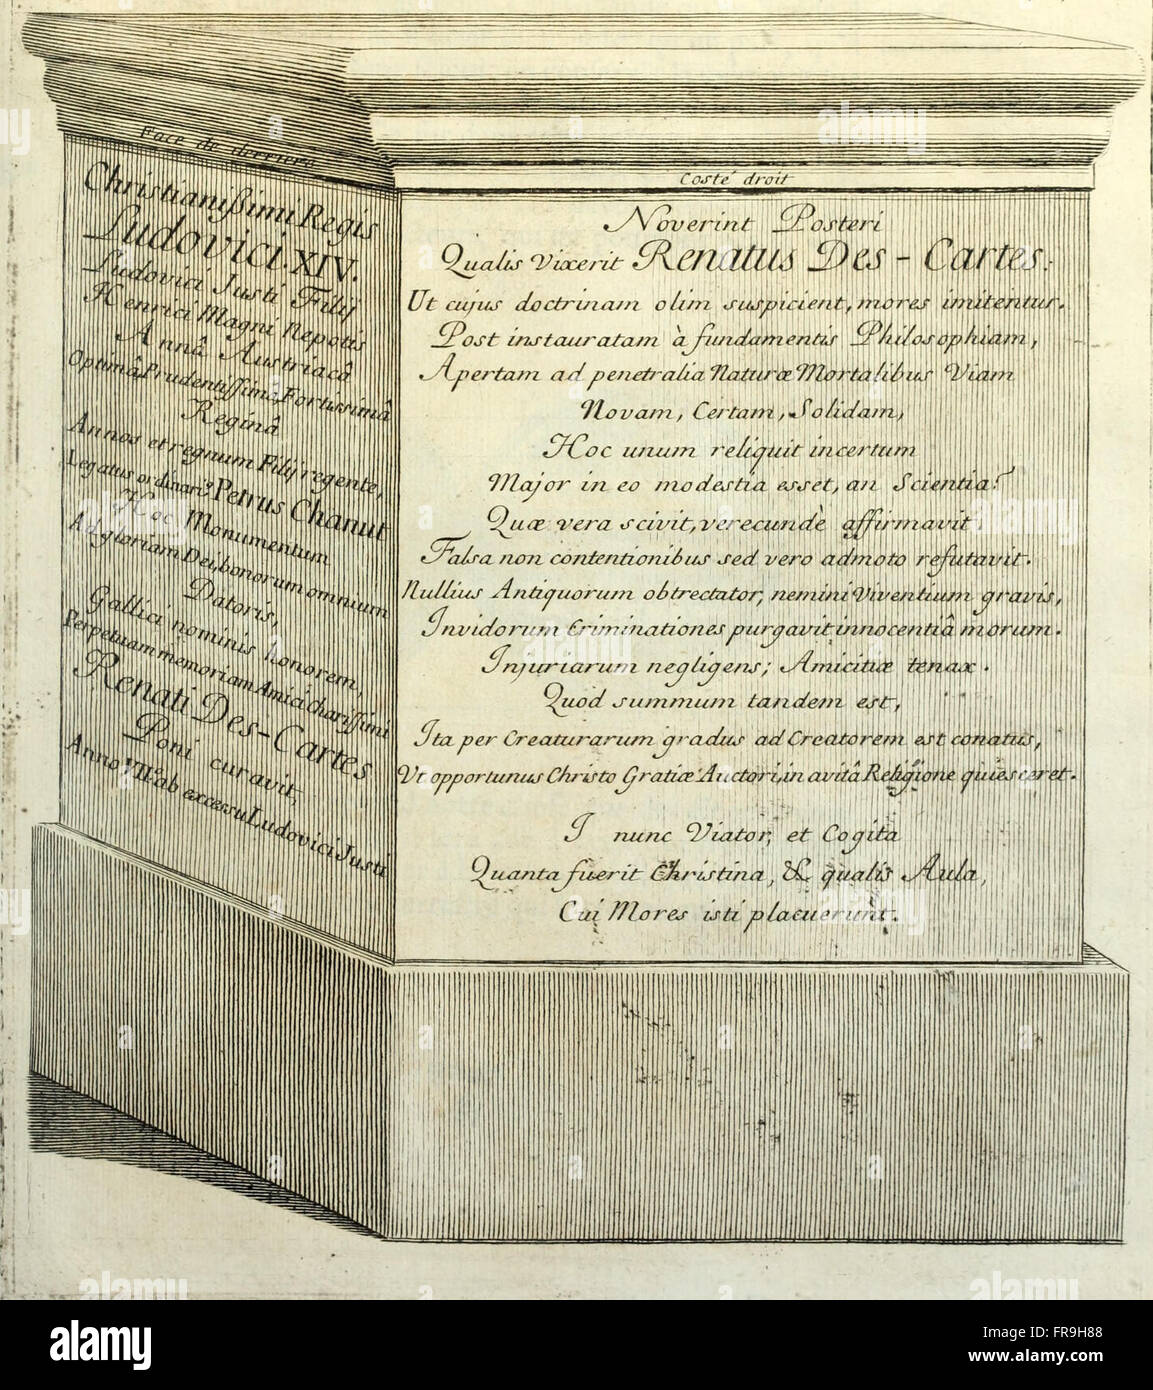 Face de derriere
Christianißimi Regis
Ludovici.XIV.
Ludovici Justi Filij
Henrici Magni Nepotis
Annâ Austriacâ
Optimâ, Prudentissimâ, Fortissimâ
Reginâ
Annos et regnum Filij regente,
Legatus ordinari⁹ Petrus Chanut
Hoc Monumentum
Ad gloriam Dei, bonorum omnium
Datoris,
Gallici nominis honorem,
Perpetuam memoriam Amici charissimi
Renati Des-Cartes
Poni curavit,
Anno VII.º ab excessu Ludovici Justi
Costé droit
Noverint Posteri
Qualis Vixerit Renatus Des-Cartes:
Ut cujus doctrinam olim suspicient, mores imitentur.
Post instauratam à fundamentis Philosophiam,
Apertam ad penetralia Naturæ Mortalibus Viam
Novam, Certam, Solidam,
Hoc unum reliquit incertum
Major in eo modestia esset, an Scientia?
Quæ vera scivit, verecundè affirmavit,
Falsa non contentionibus sed vero admoto refutavit.
Nullius Antiquorum obtrectator, nemini Viventium gravis,
Invidorum Criminationes purgavit innocentiâ morum.
Injuriarum negligens; Amicitiæ tenax.
Quod summum tandem est,
Ita per Creaturarum gradus ad Creatorem est conatus,
Ut opportunus Christo Gratiæ Auctori, in avitâ Religione quiesceret.
I nunc Viator, et Cogita
Quanta fuerit Christina, & qualis Aula,
Cui Mores isti placuerunt.
alamy
FR9H88
www.alamy.com